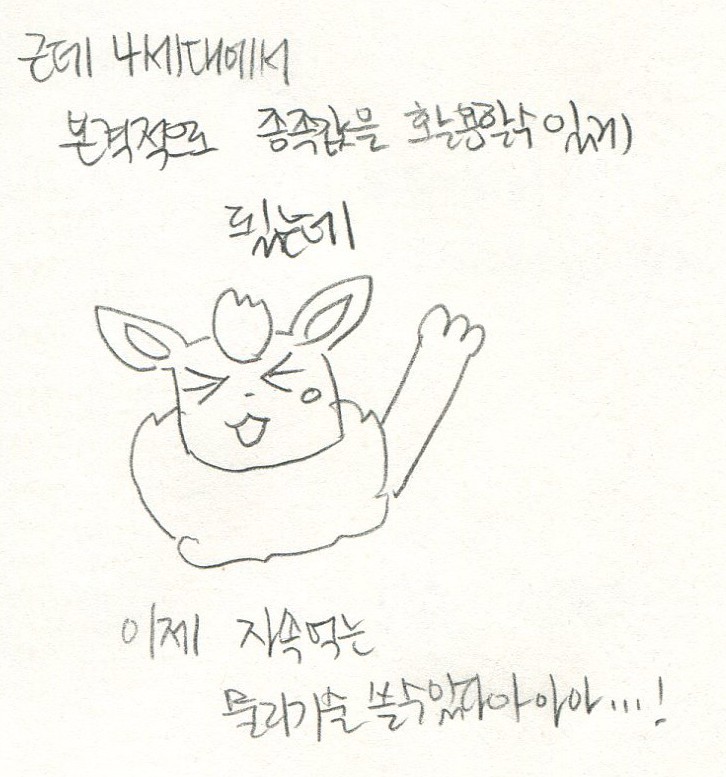 근데 4세대에서
본격적으로 종족값을 활용할수 있게
됐는데
이제 자속먹는
물리기술 쓸수있다아아아...!